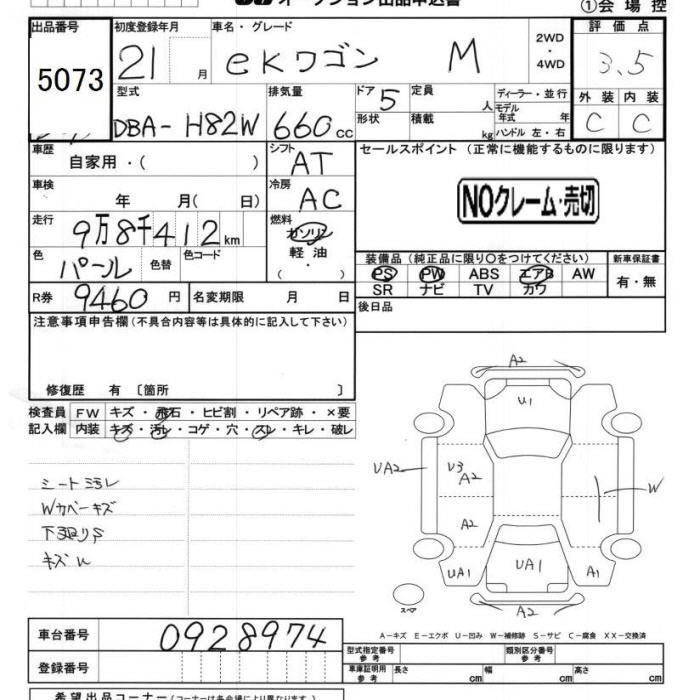 オークション出品申込書
①会場控
出品番号 初度登録年月 車名・グレード 評価点
5073 21 月 eKワゴン M 2WD・4WD 3.5
型式 排気量 ドア 5 定員 人 ディーラー・並行 外装 内装
DBA-H82W 660cc 形状 積載 kg モデル年式 年 C C
ハンドル 左・右
車歴 自家用・( ) シフト AT セールスポイント(正常に機能するものに限ります)
車検 年 月( 日) 冷房 AC NOクレーム・売切
走行 9万8千412km 燃料 ガソリン
軽油
・
( )
色 パール 色替 色コード
装備品(純正品に限り○をつけてください) 新車保証書
PS PW ABS エアB AW 有・無
SR ナビ TV カワ
R券 9460円 名変期限 月 日 後日品
注意事項申告欄(不具合内容等は具体的に記入して下さい)
修復歴 有 〔箇所 〕
検査員 FW キズ・飛石・ヒビ割・リペア跡・×要
記入欄 内装 キズ・汚レ・コゲ・穴・スレ・キレ・破レ
シート汚レ
Wカバーキズ
キズU
A2
U1
UA2 U3 A2 W
A2
UA1 UA1 A1
A2
スペア
A-キズ E-エクボ U-凹み W-補修跡 S-サビ C-腐食 XX-交換済
車台番号 0928974
登録番号
型式指定番号 参考 類別区分番号 参考
車庫証明用 参考 長さ cm 幅 cm 高さ cm
希望出品コーナー